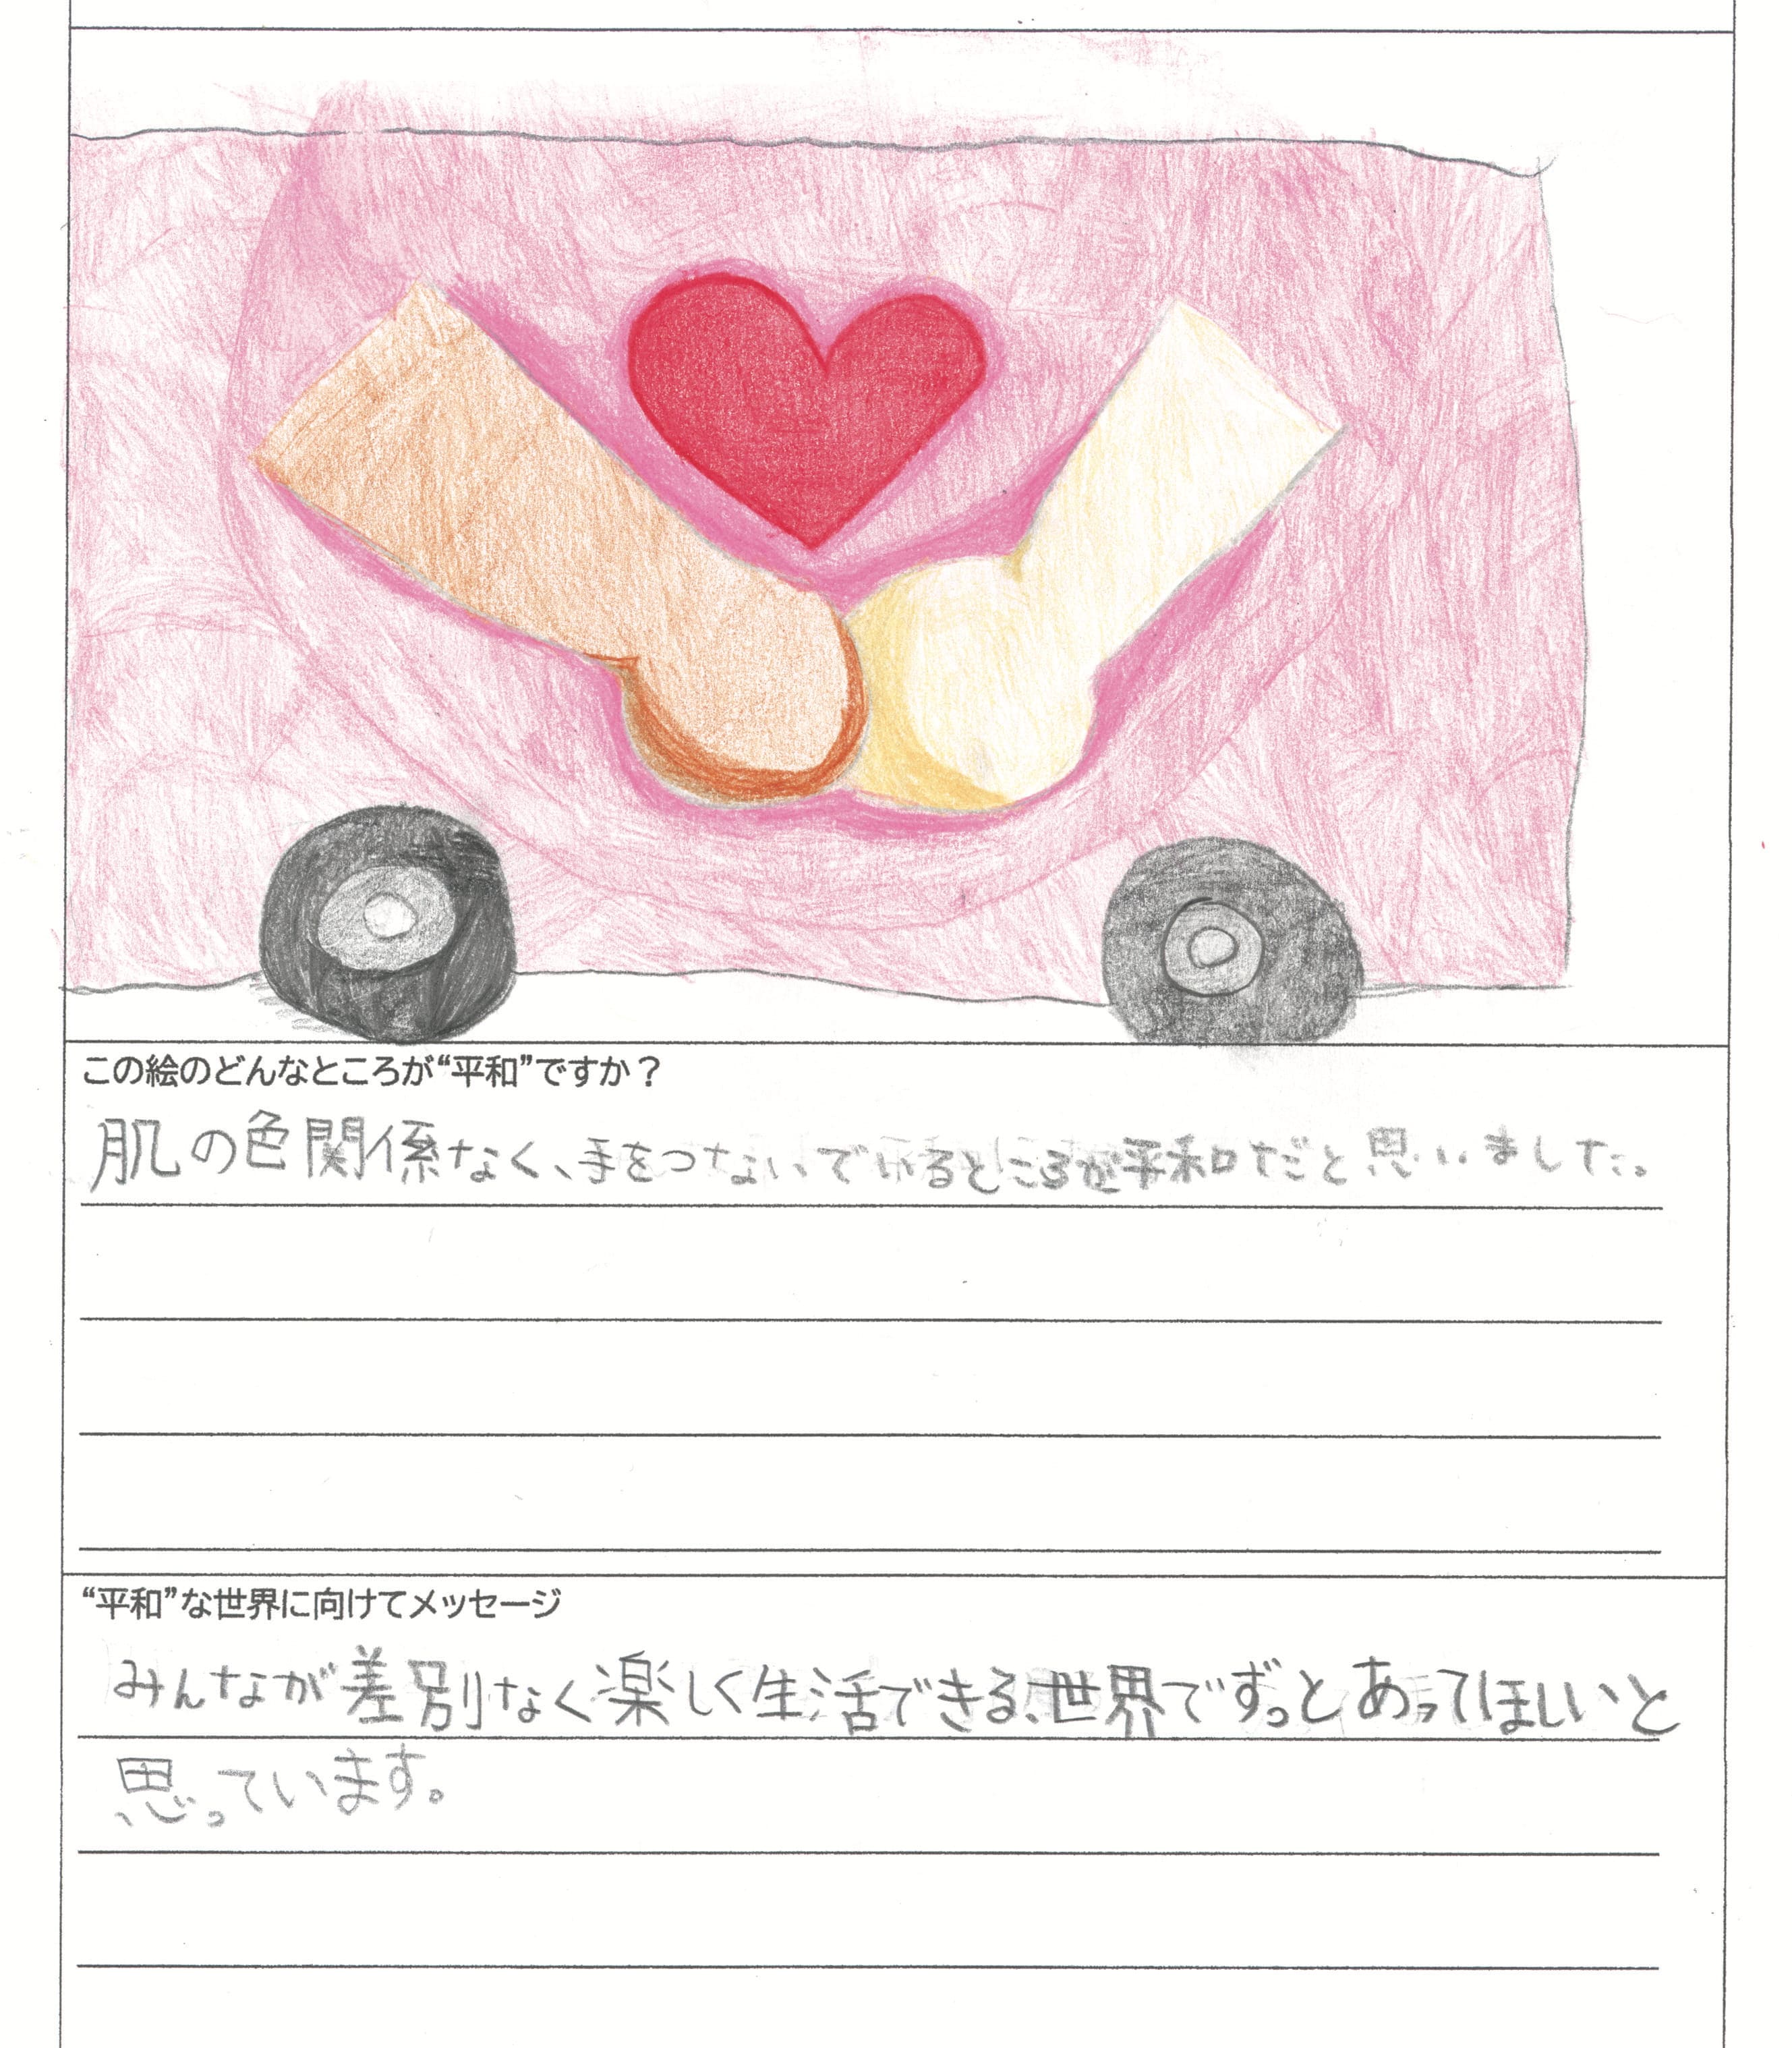 この絵のどんなところが“平和”ですか？
肌の色関係なく、手をつないでいるところが平和だと思いました。
“平和”な世界に向けてメッセージ
みんなが差別なく楽しく生活できる、世界でずっとあってほしいと
思っています。